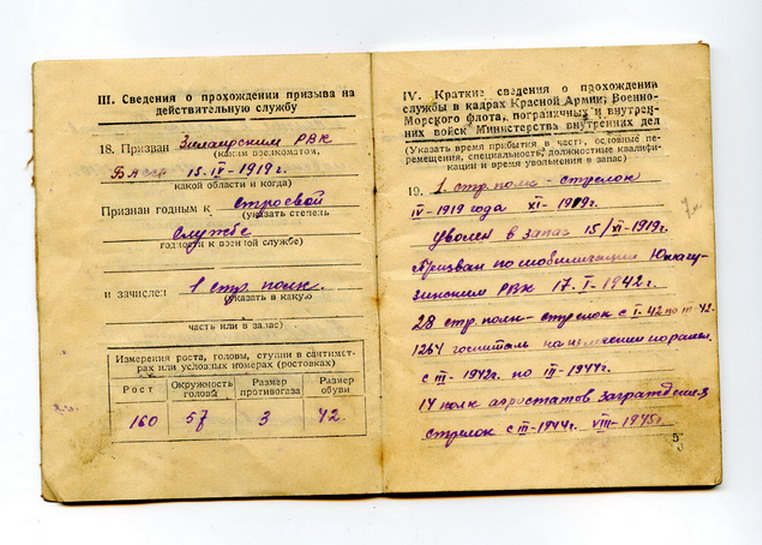 III. Сведения о прохождении призыва на
действительную службу
18. Призван Зилаирским РВК
(каким военкоматом,
БАССР 15-IV-1919г.
какой области и когда)
Признан годным к строевой
(указать степень
службе
годности к военной службе)
и зачислен 1 стр. полк.
(указать в какую
часть или в запас)
Измерения роста, головы, ступни в сантимет-
рах или условных номерах (ростовках)
Рост Окружность головы Размер противогаза Размер обуви
160 57 3 42
IV. Краткие сведения о прохождении
службы в кадрах Красной Армии, Военно-
Морского флота, пограничных и внутрен-
них войск Министерства внутренних дел
(Указать время прибытия в часть, основные пе-
ремещения, специальность, должностные квалифи-
кации и время увольнения в запас)
19. 1. стр. полк - стрелок
IV-1919 года XI-1919г.
Уволен в запас 15/XI-1919г.
Призван по мобилизации Юмагу-
зинским РВК 17-I-1942г.
28 стр. полк - стрелок с I-42 по III-42.
1264 госпиталь на излечении по ранен.
с III-1942г. по III-1944г.
14 полк аэростатов заграждения
стрелок с III-1944г. VIII-1945г.
5